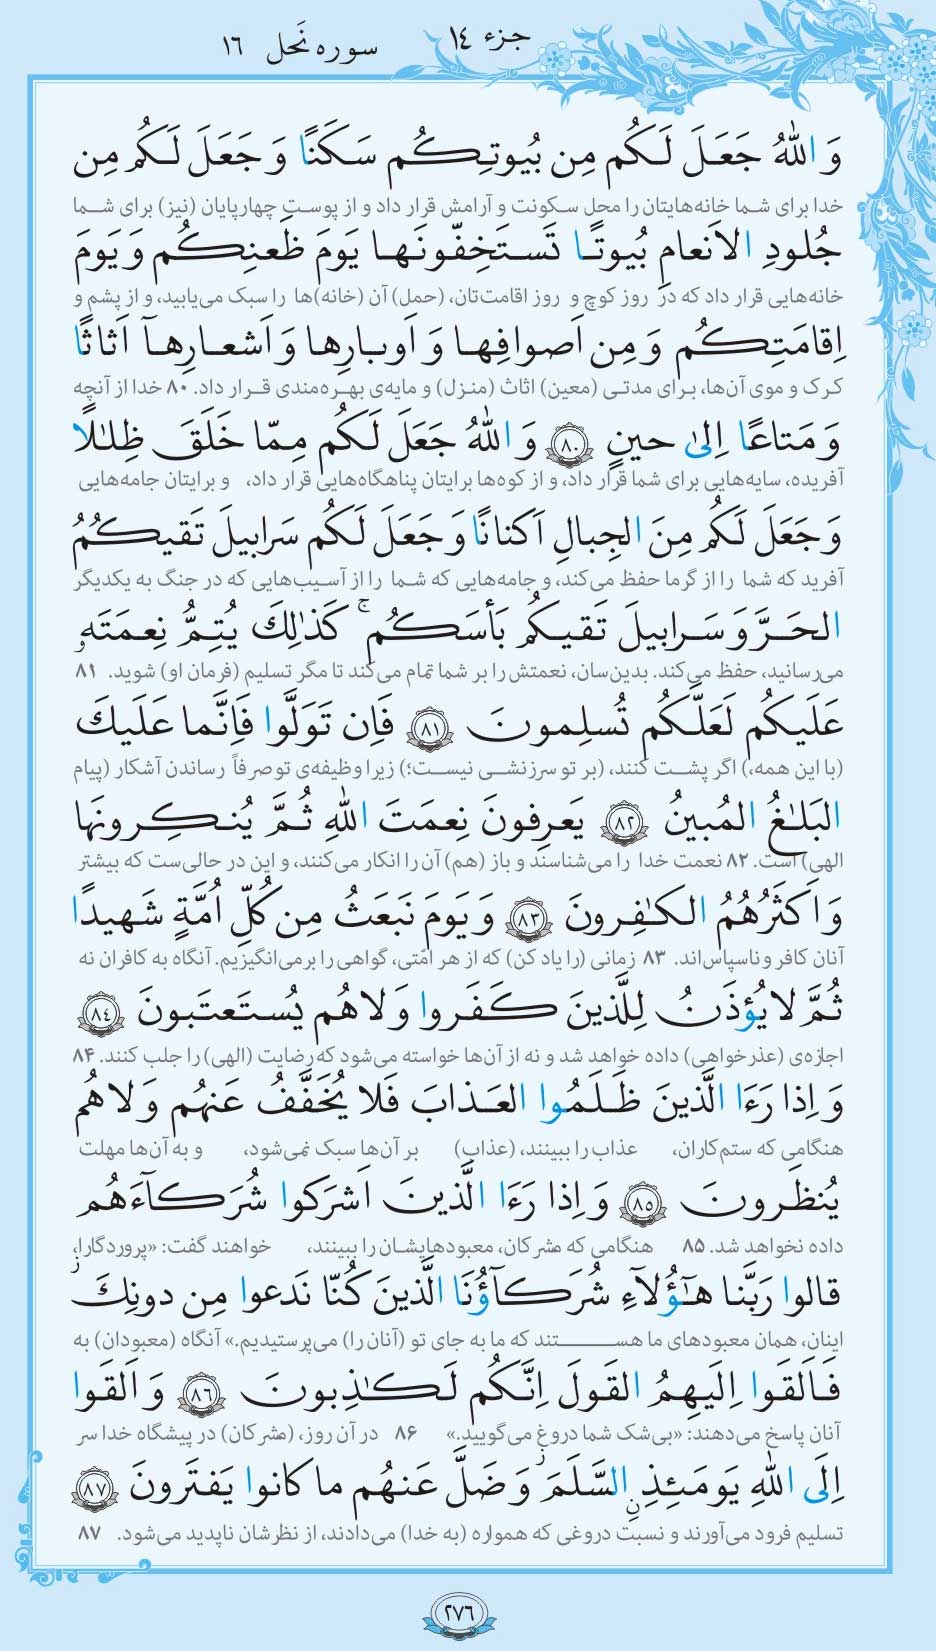 جزء ١٤
سوره نَحل ١٦
وَ اللهُ جَعَلَ لَكُم مِن بُيوتِكُم سَكَنًا وَ جَعَلَ لَكُم مِن
خدا برای شما خانه‌هایتان را محل سکونت و آرامش قرار داد و از پوست چهارپایان (نیز) برای شما
جُلودِ الاَنعامِ بُيوتًا تَستَخِفّونَها يَومَ ظَعنِكُم وَ يَومَ
خانه‌هایی قرار داد که در روز کوچ و روز اقامت‌تان، (حمل) آن (خانه)ها را سبک می‌یابید، و از پشم و
اِقامَتِكُم وَ مِن اَصوافِها وَ اَوبارِها وَ اَشعارِهآ اَثاثًا
کرک و موی آن‌ها، برای مدتی (معین) اثاث (منزل) و مایه‌ی بهره‌مندی قرار داد. ۸۰ خدا از آنچه
وَ مَتاعًا اِلىٰ حينٍ ٨٠ وَ اللهُ جَعَلَ لَكُم مِمّا خَلَقَ ظِلٰلًا
آفریده، سایه‌هایی برای شما قرار داد، و از کوه‌ها برایتان پناهگاه‌هایی قرار داد، و برایتان جامه‌هایی
وَ جَعَلَ لَكُم مِنَ الجِبالِ اَكنانًا وَ جَعَلَ لَكُم سَرابيلَ تَقيكُمُ
آفرید که شما را از گرما حفظ می‌کند، و جامه‌هایی که شما را از آسیب‌هایی که در جنگ به یکدیگر
الحَرَّ وَ سَرابيلَ تَقيكُم بَأسَكُم ۚ كَذٰلِكَ يُتِمُّ نِعمَتَه‌و
می‌رسانید، حفظ می‌کند. بدین‌سان، نعمتش را بر شما تمام می‌کند تا مگر تسلیم (فرمان او) شوید. ۸۱
عَلَيكُم لَعَلَّكُم تُسلِمونَ ٨١ فَاِن تَوَلَّوا فَاِنَّما عَلَيكَ
(با این همه،) اگر پشت کنند، (بر تو سرزنشی نیست؛) زیرا وظیفه‌ی تو صرفاً رساندن آشکار (پیام
البَلٰغُ المُبينُ ٨٢ يَعرِفونَ نِعمَتَ اللهِ ثُمَّ يُنكِرونَها
الهی) است. ۸۲ نعمت خدا را می‌شناسند و باز (هم) آن را انکار می‌کنند، و این در حالی‌ست که بیشتر
وَ اَكثَرُهُمُ الكٰفِرونَ ٨٣ وَ يَومَ نَبعَثُ مِن كُلِّ اُمَّةٍ شَهيدًا
آنان کافر و ناسپاس‌اند. ۸۳ زمانی (را یاد کن) که از هر امّتی، گواهی را برمی‌انگیزیم. آنگاه به کافران نه
ثُمَّ لا يُؤذَنُ لِلَّذينَ كَفَروا وَ لا هُم يُستَعتَبونَ ٨٤
اجازه‌ی (عذرخواهی) داده خواهد شد و نه از آن‌ها خواسته می‌شود که رضایت (الهی) را جلب کنند. ۸۴
وَ اِذا رَءَا الَّذينَ ظَلَمُوا العَذابَ فَلا يُخَفَّفُ عَنهُم وَ لا هُم
هنگامی که ستم‌کاران، عذاب را ببینند، (عذاب) بر آن‌ها سبک نمی‌شود، و به آن‌ها مهلت
يُنظَرونَ ٨٥ وَ اِذا رَءَا الَّذينَ اَشرَكوا شُرَكآءَهُم
داده نخواهد شد. ۸۵ هنگامی که مشرکان، معبودهایشان را ببینند، خواهند گفت: «پروردگارا،
قالوا رَبَّنا هٰٓؤُلآءِ شُرَكآؤُنَا الَّذينَ كُنّا نَدعوا مِن دونِكَ ز
اینان، همان معبودهای ما هستند که ما به جای تو (آنان را) می‌پرستیدیم.» آنگاه (معبودان) به
فَاَلقَوا اِلَيهِمُ القَولَ اِنَّكُم لَكٰذِبونَ ٨٦ وَ اَلقَوا
آنان پاسخ می‌دهند: «بی‌شک شما دروغ می‌گویید.» ۸۶ در آن روز، (مشرکان) در پیشگاه خدا سر
اِلَى اللهِ يَومَئِذِنِ السَّلَمَ ز وَ ضَلَّ عَنهُم ما كانوا يَفتَرونَ ٨٧
تسلیم فرود می‌آورند و نسبت دروغی که همواره (به خدا) می‌دادند، از نظرشان ناپدید می‌شود. ۸۷
٢٧٦